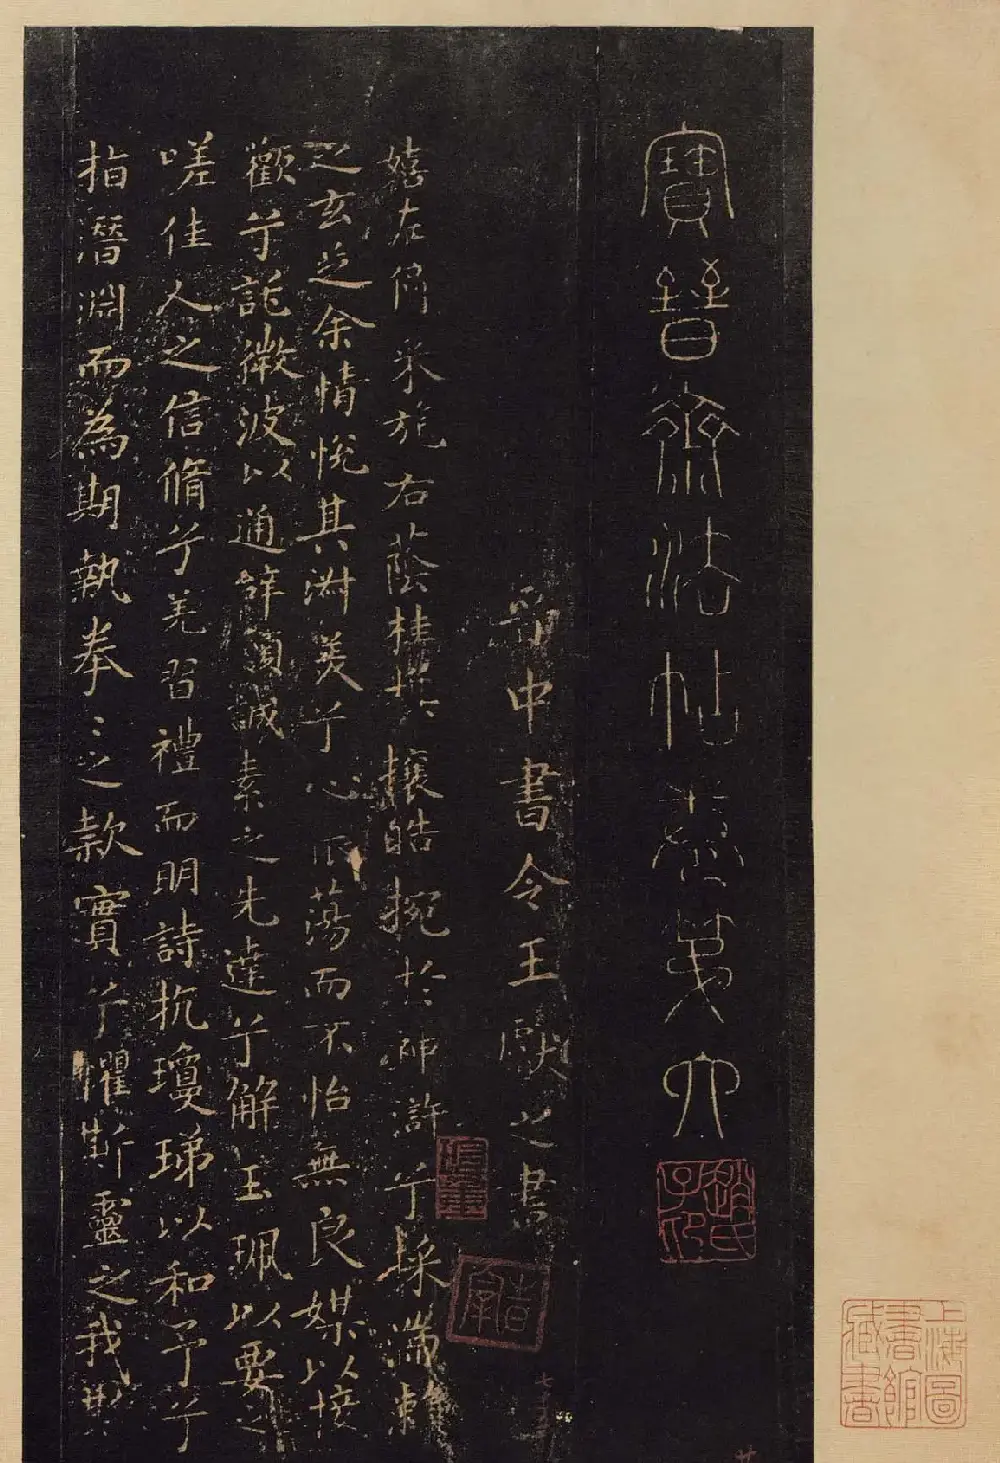 寶晉齋法帖卷第六
晉中書令王獻之書
嬉左倚采旄右蔭桂旗攘皓捥於神滸兮採湍瀨
之玄芝余情悅其淋美兮心振蕩而不怡無良媒以接
歡兮託微波以通辭願誠素之先達兮解玉珮以要之
嗟佳人之信脩兮羌習禮而明詩抗瓊珶以和予兮
指潛淵而為期執拳〻之款實兮懼斯靈之我欺
趙氏子印
上海圖書館藏書